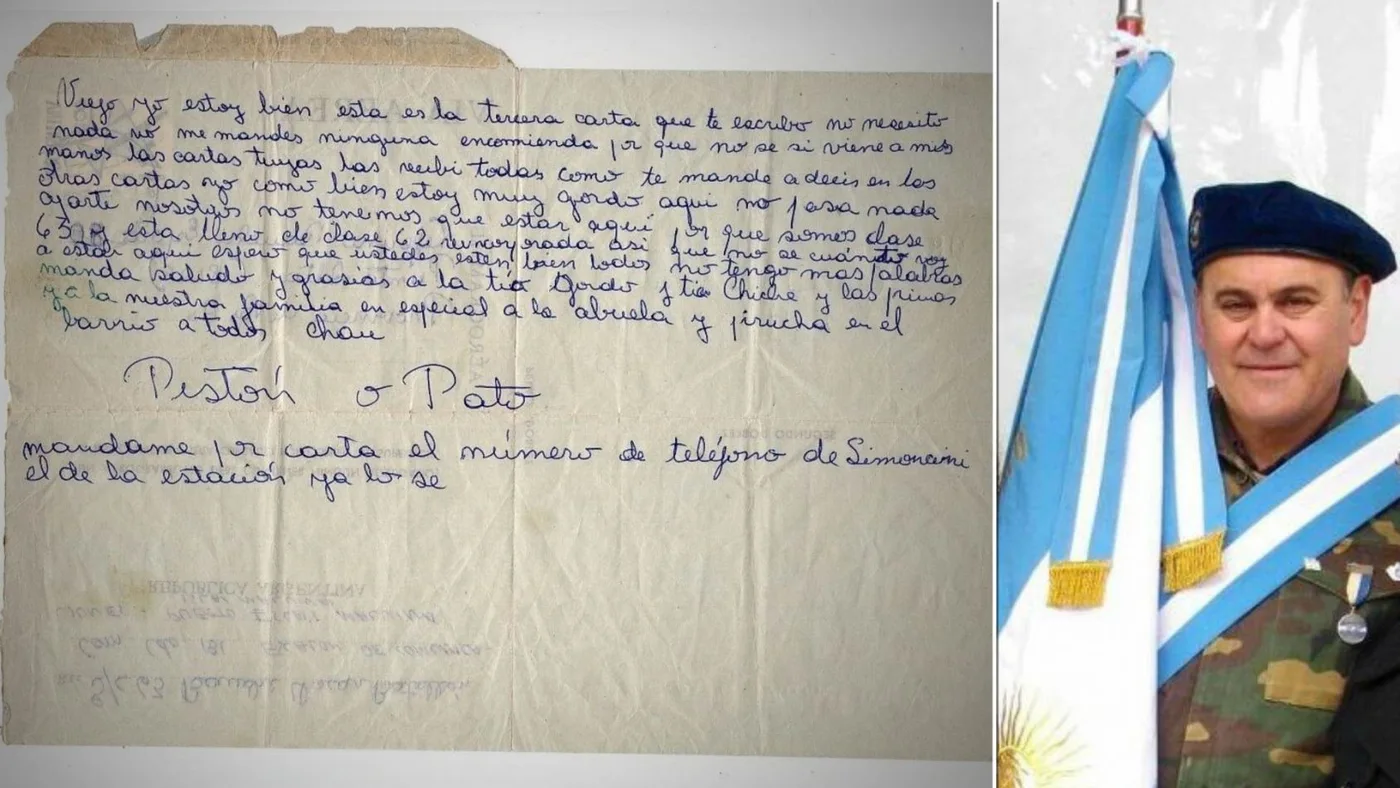 Viejo yo estoy bien esta es la tercera carta que te escribo no necesito
nada no me mandes ninguna encomienda por que no se si viene a mis
manos las cartas tuyas las recibi todas como te mande a decir en las
otras cartas yo como bien estoy muy gordo aqui no pasa nada
aparte nosotros no tenemos que estar aqui por que somos clase
63 y esta lleno de clase 62 reincorporada asi que no se cuánto voy
a estar aqui espero que ustedes esten bien todos no tengo mas palabras
manda saludo y grasias a la tia Gordo y tia Chiche y las primas
y a la nuestra familia en especial a la abuela y pirucha en el
barrio a todos chau
Pistón o Pato
mandame por carta el número de teléfono de Simoncini
el de la estación ya lo se
REPÚBLICA ARGENTINA